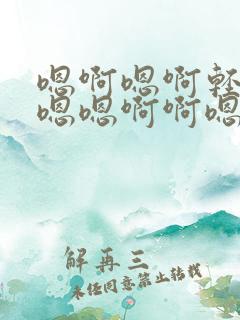 嗯啊嗯啊轻
嗯嗯啊啊嗯
解再三
未经同意禁止转载